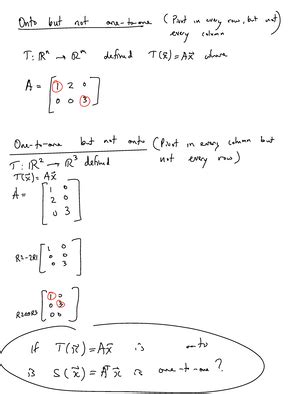 Onto but not one-to-one (Pivot in every row, but not
every column)
T: ℝⁿ → ℝᵐ defined T(x⃗) = Ax⃗ where
A = [1 2 0
0 0 3]
One-to-one but not onto (Pivot in every column but
not every row)
T: ℝ² → ℝ³ defined
T(x⃗) = Ax⃗
A = [1 0
2 0
0 3]
R2-2R1 [1 0
0 0
0 3]
[1 0
0 3
0 0]
if T(x⃗) = Ax⃗ is onto
is S(x⃗) = Aᵀx⃗ is one-to-one?